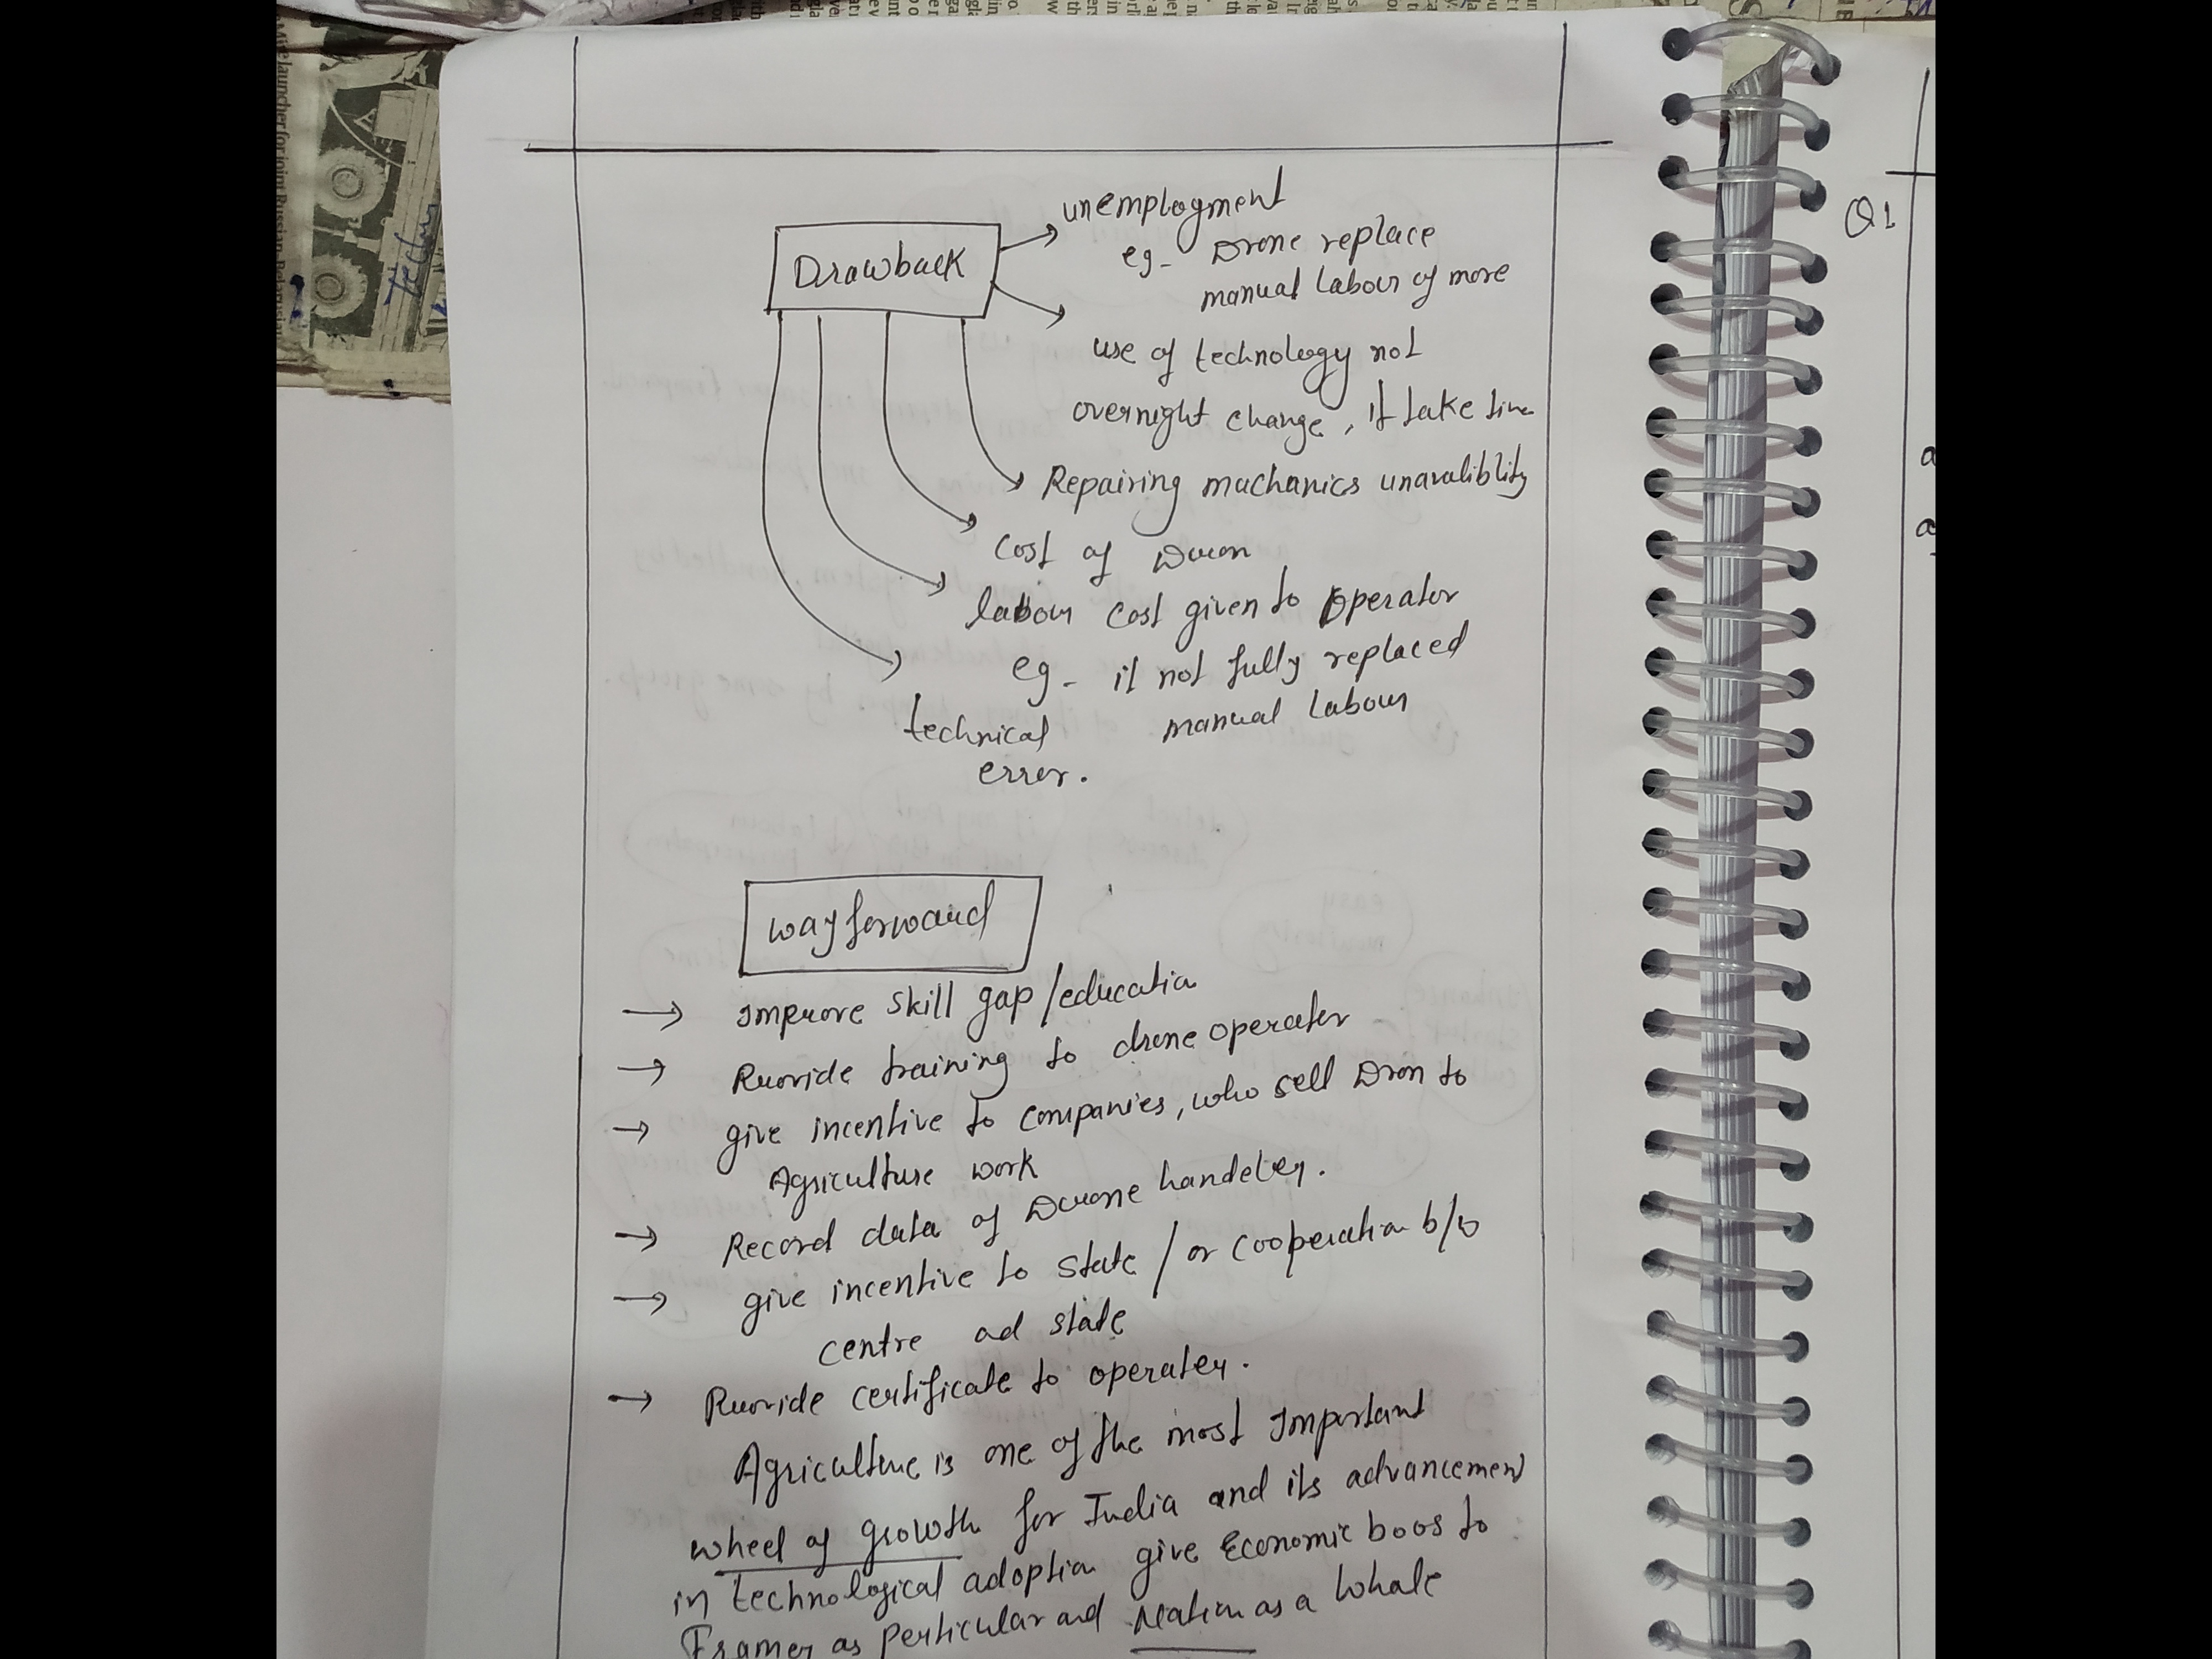 Drawback
unemployment
eg- Drone replace
manual labour of more
use of technology not
overnight change, it take time
Repairing machanics unavaliblity
cost of Dron
labour cost given to operator
eg- it not fully replaced
manual labour
technical
error.
way forward
Improve skill gap/education
Provide training to drone operater
give incentive to companies, who sell Dron to
Agriculture work
Record data of Drone handeler.
give incentive to state / or cooperation b/w
centre ad state
Provide certificate to operater.
Agriculture is one of the most Important
wheel of growth for India and its advancement
in technological adoption give Economic boos to
Framer as Perticular and Nation as a whole
Q1